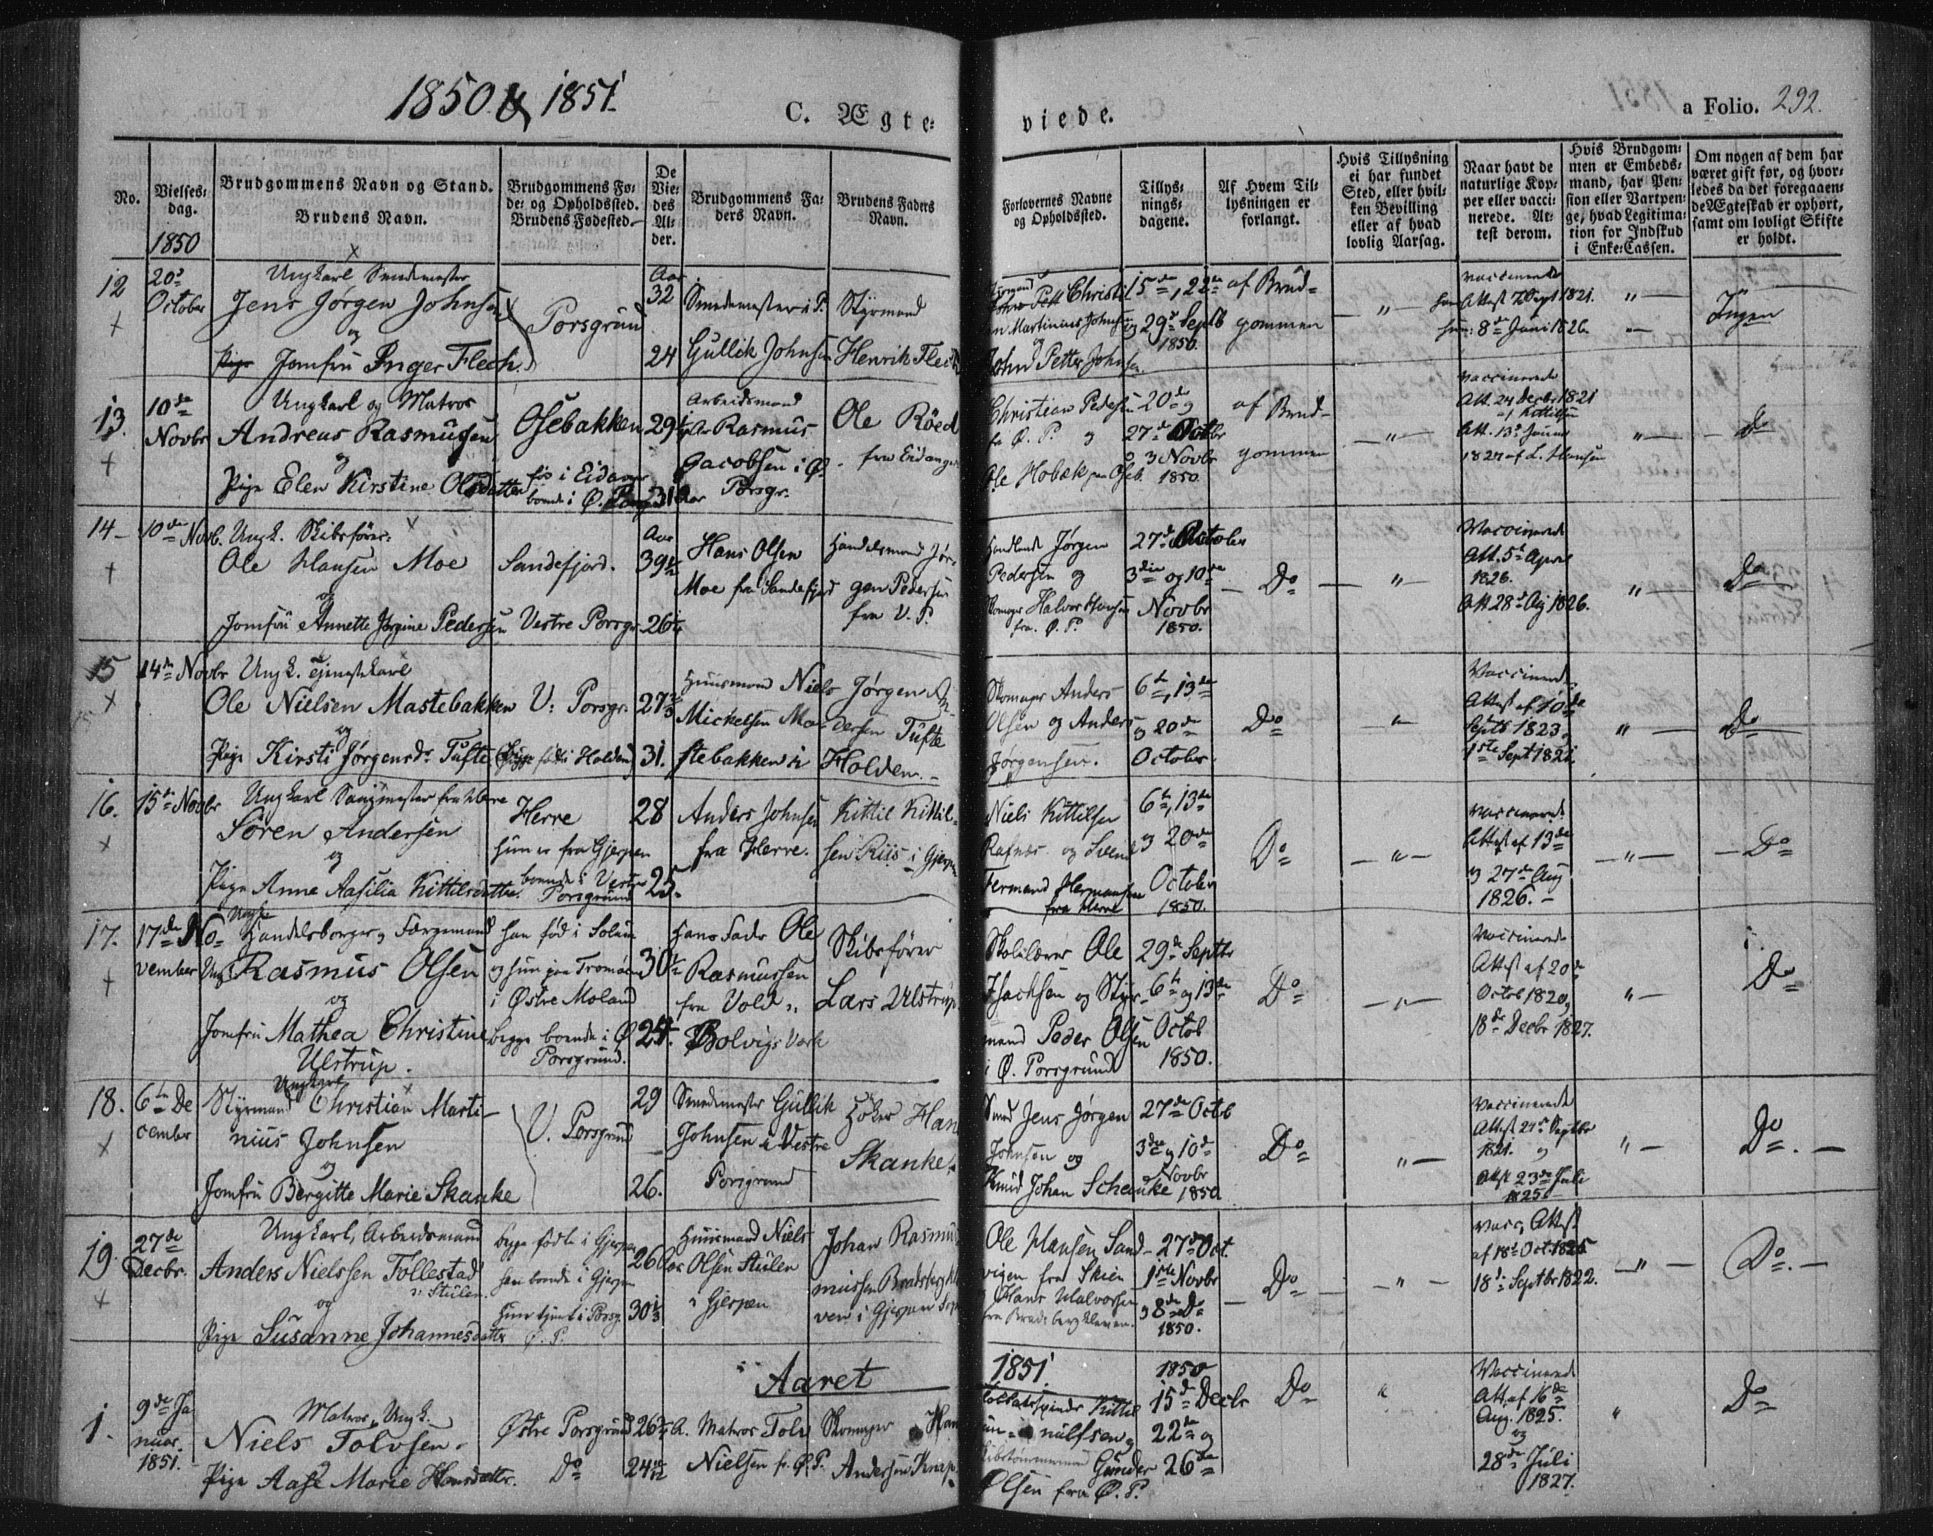 1850 & 1851.
C. Ægteviede.
a Folio. 292.
No.
Vielsesdag.
Brudgommens Navn og Stand.
Brudens Navn.
Brudgommens Føde- og Opholdssted.
Brudens Fødested.
De Viedes Alder.
Brudgommens Faders Navn.
Brudens Faders Navn.
Forlovernes Navne og Opholdssted.
Tillysningsdagene.
Af Hvem Tillysningen er forlangt.
Hvis Tillysning ei har fundet Sted, eller hvilken Bevilling eller af hvad lovlig Aarsag.
Naar havt de naturlige Kopper eller vaccinerede. Attest derom.
Hvis Brudgommen er Embedsmand, har Pension eller Vartpenge, hvad Legitimation for Indskud i Enke-Cassen.
Om nogen af dem har været gift før, og hvorledes da det foregaaende Ægteskab er ophørt, samt om lovligt Skifte er holdt.
1850
12
20de October
Ungkarl Smedemester
Jens Jørgen Johnsen
og
Jomfru Inger Flech
Porsgrund
Aar
32
24
Smedemester i P.
Gullik Johnsen
Styrmand
Henrik Flech
John Petter Johnsen
15de, 22de
og 29de Septb
1850.
af Brudgommen
vaccinerede
8de Juni 1826.
Ingen
13.
10de Novbr
Ungkarl og Matros
Andreas Rasmussen
og
Pige Elen Kirstine Olsdatter
Osebakken
fød i Eidanger
boende i Ø. Porsgrund
Arbeidsmand
Rasmus
Jacobsen i Ø.
Porsgr.
Ole Röed
fra Eidanger
Christian Pedersen
fr Ø. P. og
Ole Hobæk
20de og
27de Octbr
3 Novbr
1850.
af Brudgommen
Vaccinerede
Att. 24 Decbr 1821
Do
14
10de Novb.
Ungk. Skibsfører
Ole Hansen Moe
og
Jomfru Annette Jørgine Pedersen
Sandefjord.
Vestre Porsgr.
Aar
39½
Hans Olsen
Moe fra Sandefjord
Handelsmand Jørgen Pedersen
fra V. P.
Handlende Jørgen
Pedersen og
Skomager Halvor Hansen
fra Ø. P.
27de October
3die og 10de
Novbr
1850.
Do
Vaccinerede
Att. 5te April
1826.
Att. 28de Aug 1826.
Do
15
14de Novbr
Ungk. Tjenestekarl
Ole Nielsen Mastebakken
og
Pige Kirsti Jørgensdr. Tufte
V. Porsgr.
Begge født i Holden
31.
Huusmand Niels
Mickelsen Mastebakken
Jørgen Andersen Tufte
Holden.
Skomager Anders
Olsen og Anders
Jørgensen.
6te, 13de
og 20de
October
Do
Vaccinerede
Attest af 10de
Septb 1823 og
1ste Sept 1821.
Do
16.
15de Novbr
Ungkarl Saugmester fra Herre
Søren Andersen
og
Pige Anne Aasilia Kittilsdatter
Herre
Hun er fra Gjerpen
boende i Vestre
Porsgrund
28
25.
Anders Johnsen
fra Herre.
Kittil Kittilsen Riis i Gjerpen
Niels Kittilsen
Rafnæs og Svend
Hermansen
fra Herre
6te, 13de
og 20de
October
1850.
Do
Vaccinerede
Attest af 13de
og 27de Aug
1826.
Do
17.
17de November
Ungk
Handelsborger og Færgemand
Rasmus Olsen
og
Jomfru Mathea Christine
Ulstrup.
han fød i Solum
og hun paa Tromøen
i Østre Moland
begge boende i Ø.
Porsgrund.
30½
24.
Hans Fader Ole
Rasmussen
fra Vold
Bolvigs Værk
Skibsfører
Lars Ulstrup
Skolelærer Ole
Isachsen og Styrmand Peder Olsen
i Ø. Porsgrund
29de Septbr
6te og 13de
Octob
1850.
Do
Vaccinerede
Attest af 20de
Octob 1820 og
18de Decbr 1827.
Do
18.
6te December
Ungkarl
Styrmand Christian Martinius Johnsen
og
Jomfru Bergitte Marie Skanke
V. Porsgrund
29
26.
Smedemester Gullik
Johnsen i Vestre
Porsgrund
Høker Han
Skanke
Smed Jens Jørgen
Johnsen og
Knud Johan Schanke
27de Octb
3die og 10de
Novbr
1850
Do
Vaccinerede
Attest 24de Septbr
1821. og
Attest 23de Juli
1825
Do
19.
27de Decbr.
Ungkarl, Arbeidsmand
Anders Nielssen Follestad
og
Pige Susanne Johannesdatter
begge fødte i Gjerpen
han boende i Gjerpen
Hun tjent i Porsg.
Ø. P.
26
30⅓
Huusmand Niels
Olsen Stulen
i Gjerpen
Johan Rasmussen Bradsbergkleven i Gjerpen
Ole Hansen Sandvigen fra Skien
og Hans Halvorsen
fra Bradsbergkleven.
27de Oct.
1ste Novbr
og 8de Do
1850.
Do
Vacc. Attest
af 18de Oct. 1825
18de Septbr 1822.
Do
Aaret 1851.
1.
9de Januar.
1851.
Matros Ungk.
Niels Tolvsen
Pige Aase Marie Hansdatter.
Østre Porsgrund
Do
Matros Tolv
Nielsen fr. Ø. P.
Skomager Han
Andersen Knap
Gunder
Olsen fra Ø. P.
1850
15de Decbr
22de og
26de
Do
Vaccinerede
Att. af 16de
Aug. 1825.
og
28de Juli
1827.
Do